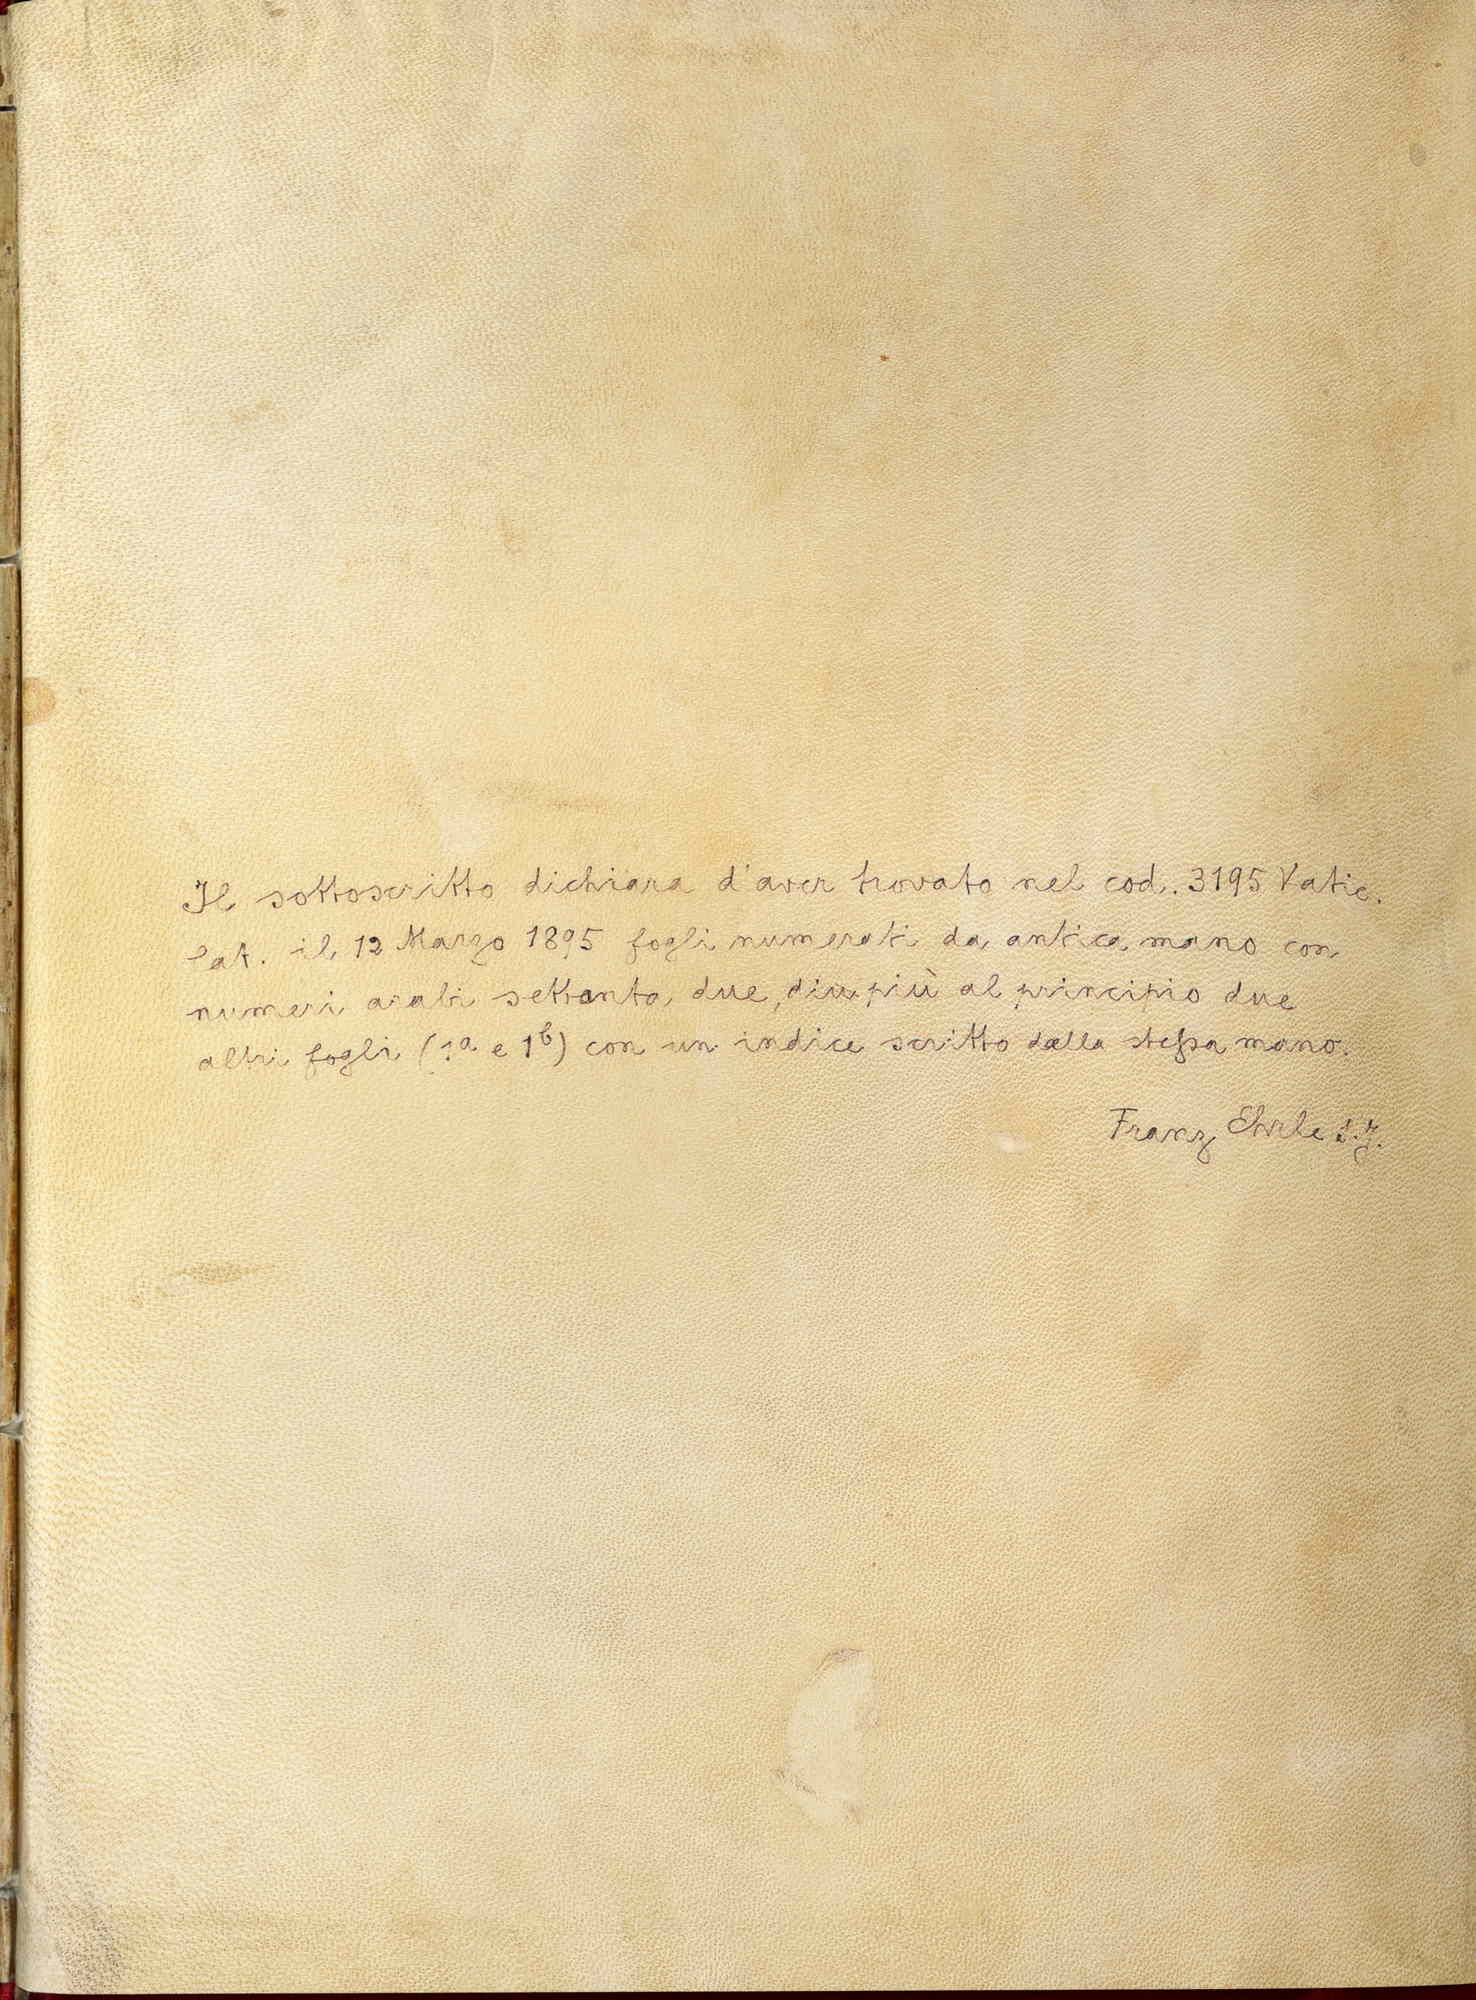 Il sottoscritto dichiara d'aver trovato nel cod. 3195 Vatic.
lat. il 12 Marzo 1895 fogli numerati da antica mano con
numeri arabi settanta due, di più al principio due
altri fogli (1ª e 1ᵇ) con un indice scritto dalla stessa mano.
Franz Ehrle S.J.